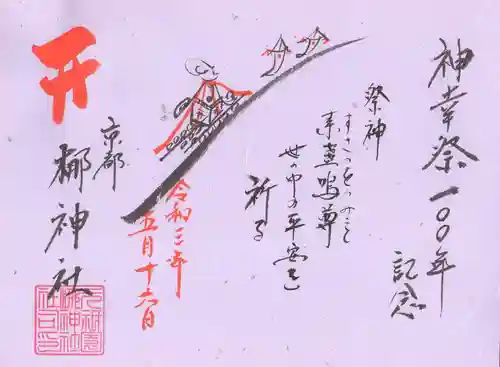 神幸祭一〇〇年
記念
祭神
すさのをのみこと
素盞嗚尊
世の中の平安を
祈る
令和三年
五月十六日
京都
梛神社
元祇園
梛神社